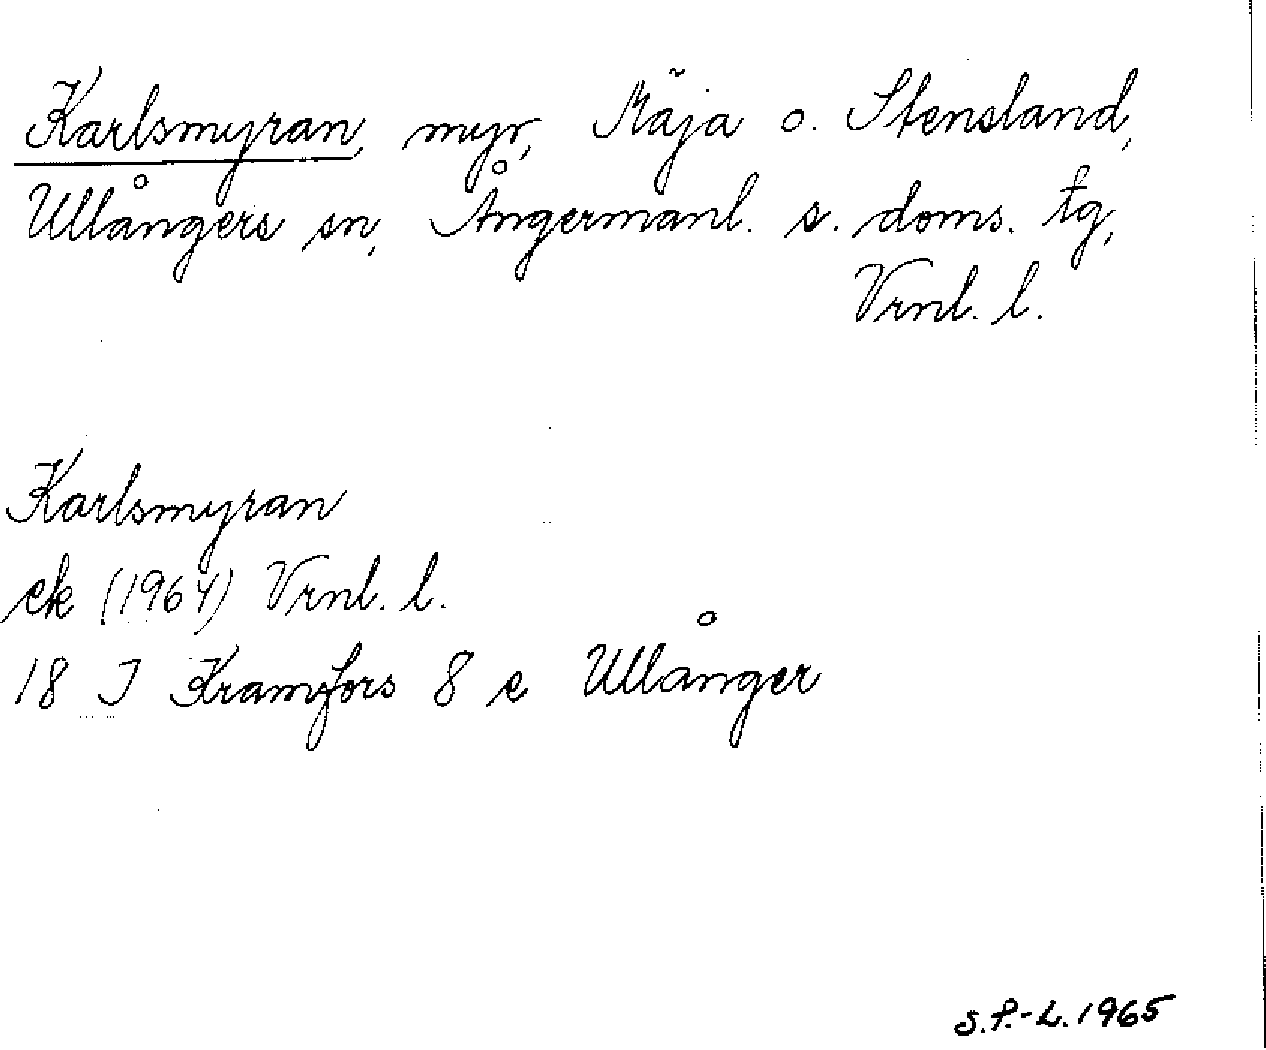 Karlsmyran, myr, Mäja o. Stensland,
Ullångers sn, Ångermanl. s. doms. tg,
Vrnl. l.
Karlsmyran
ek (1964) Vrnl. l.
18 I Kramfors 8 e Ullånger
S.P.-L. 1965